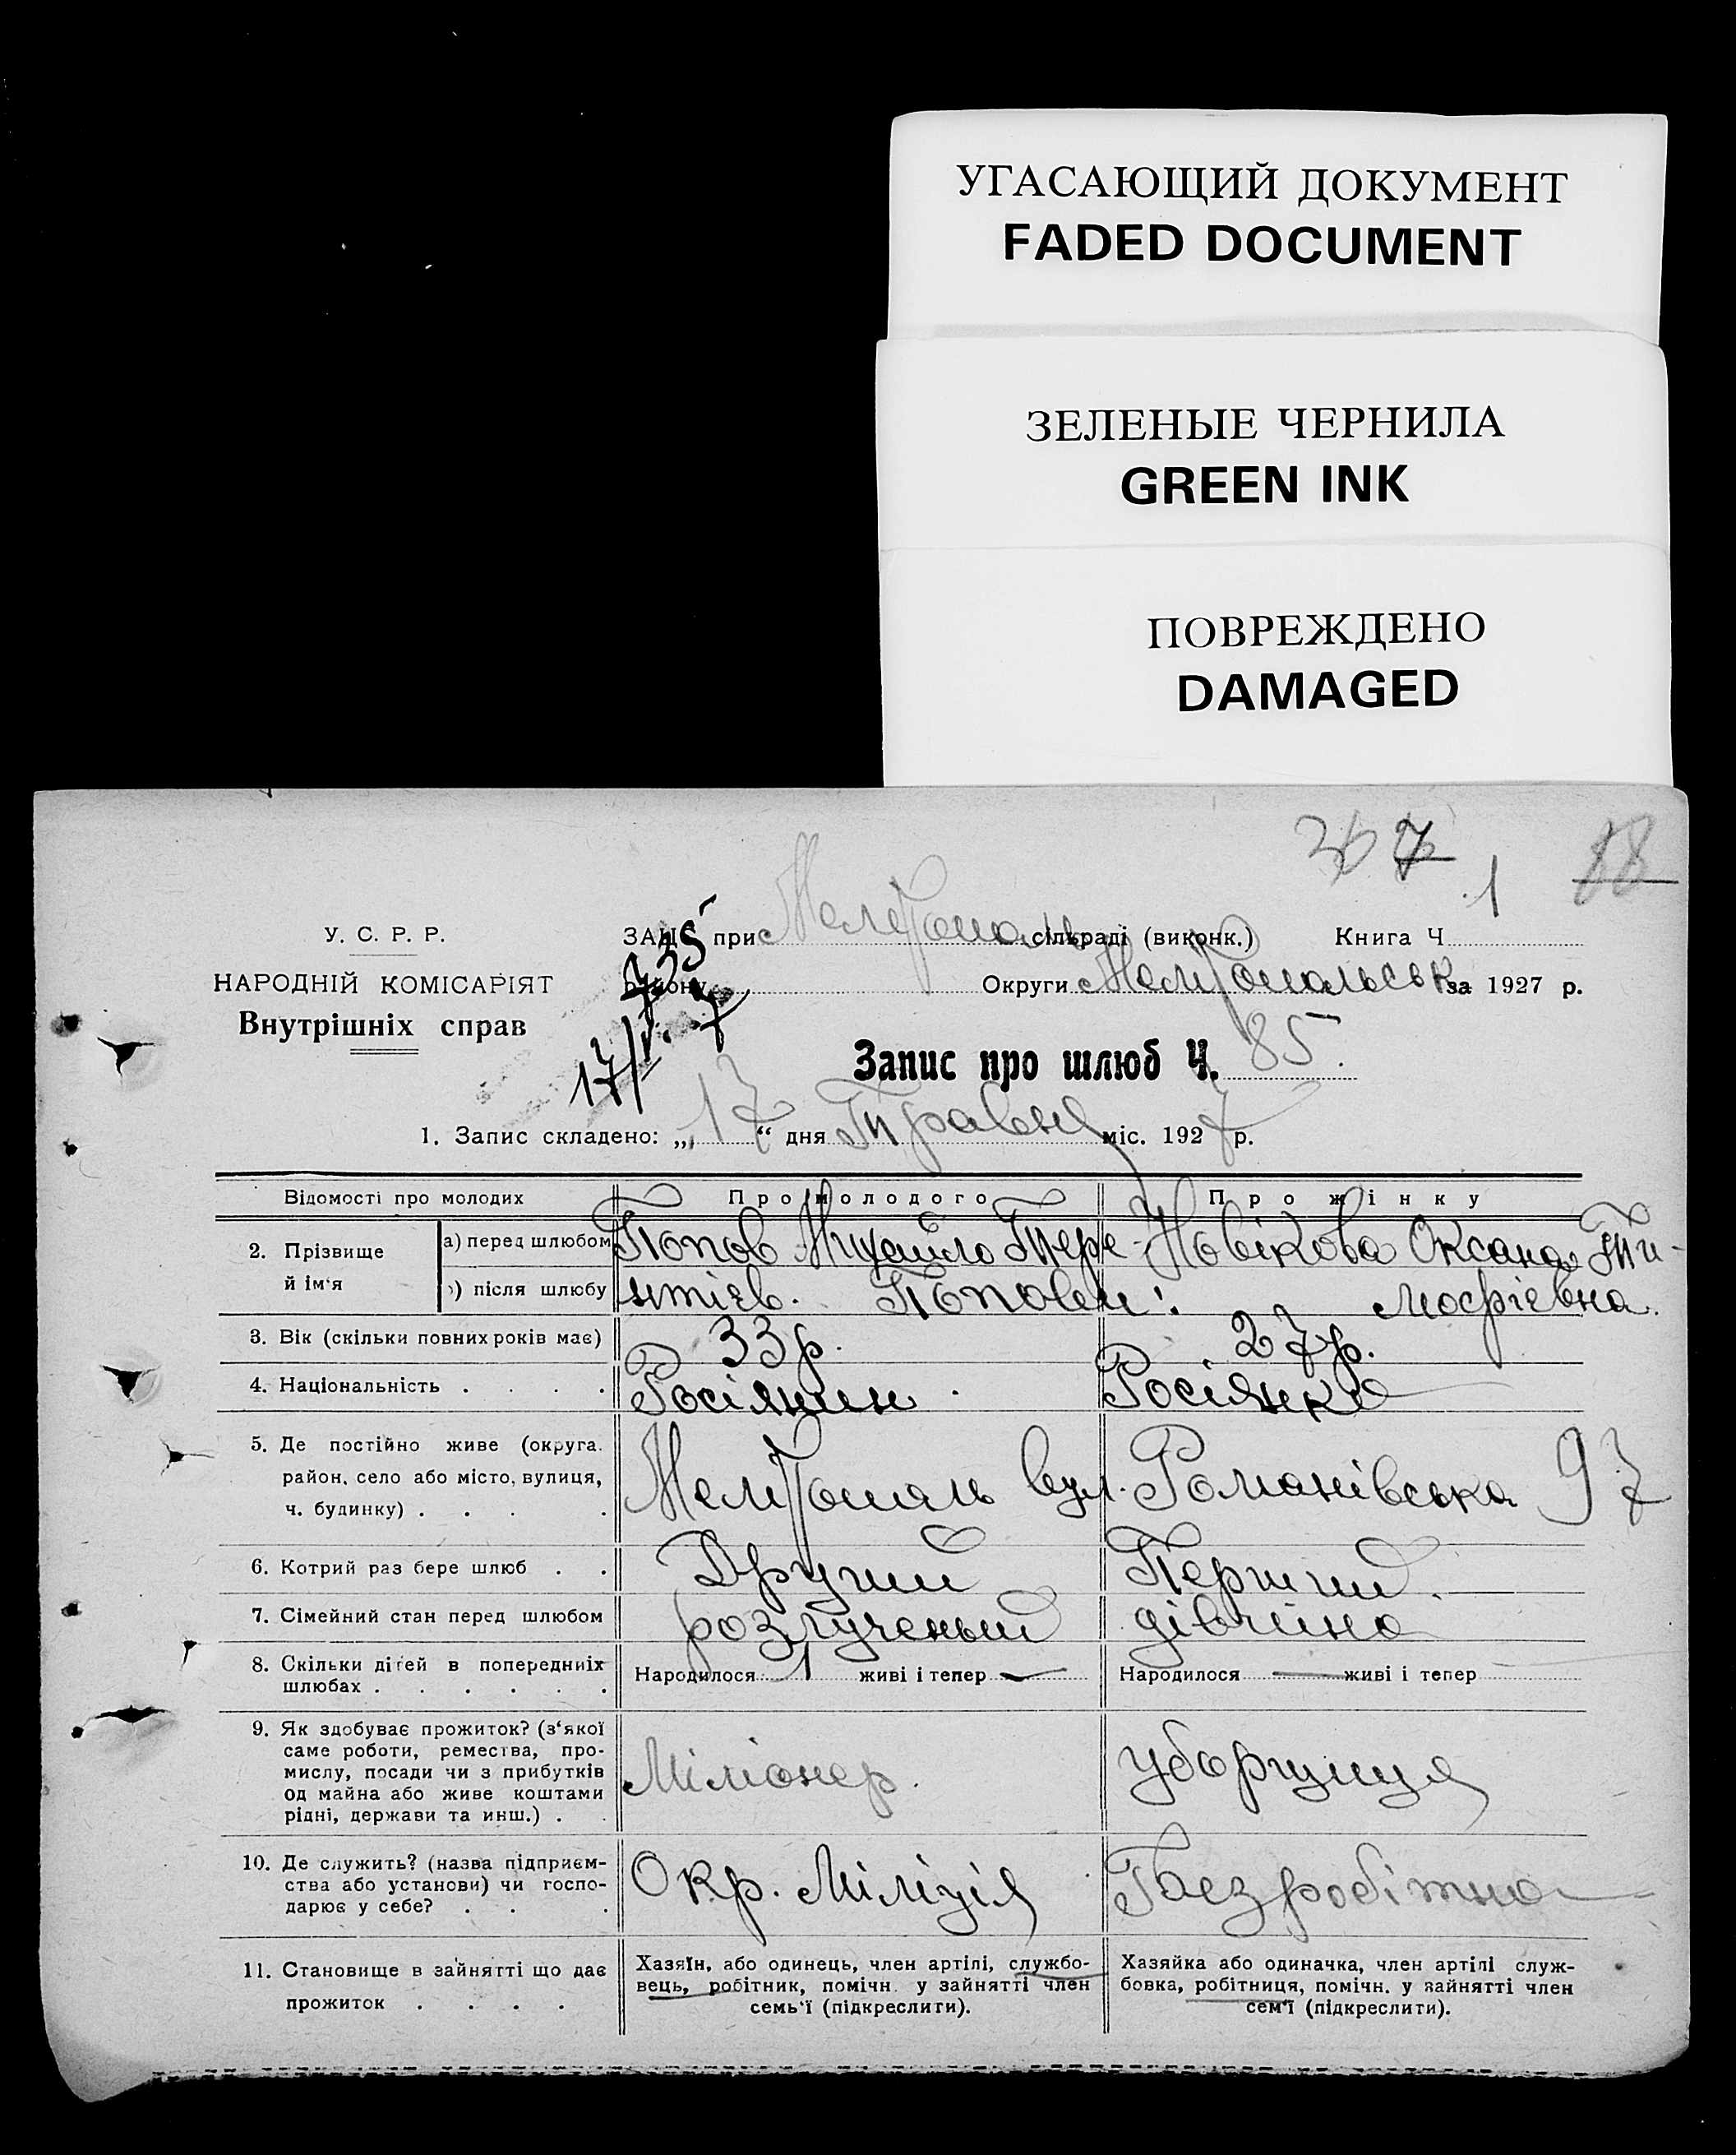 УГАСАЮЩИЙ ДОКУМЕНТ
FADED DOCUMENT
ЗЕЛЕНЫЕ ЧЕРНИЛА
GREEN INK
ПОВРЕЖДЕНО
DAMAGED
7
1 18
У. С. Р. Р.
НАРОДНІЙ КОМІСАРІЯТ
Внутрішніх справ
ЗАЦС при Мелітополь сільраді (виконк.) Книга Ч
району Округи Мелітопольськ за 1927 р.
735
17/V. 7
Запис про шлюб Ч. 85.
1. Запис складено: „17“ дня Травня міс. 1927 р.
Відомості про молодих Про молодого Про жінку
2. Прізвище й ім'я а) перед шлюбом Попов Михайло Тере- Новікова Оксана Ти-
б) після шлюбу нтієв. Попови: мофієвна.
3. Вік (скільки повних років має) 33 р. 27 р.
4. Національність . . . . Росіянин . Росіянка
5. Де постійно живе (округа.
район, село або місто, вулиця,
ч. будинку) . . . . Мелітополь вул. Романівська 97
6. Котрий раз бере шлюб . . Другий Перший.
7. Сімейний стан перед шлюбом розлученый дівчина
8. Скільки дітей в попередніх
шлюбах . . . . . . Народилося 1 живі і тепер — Народилося — живі і тепер
9. Як здобуває прожиток? (з'якої
саме роботи, ремества, про-
мислу, посади чи з прибутків
од майна або живе коштами
рідні, держави та инш.) . . Міліонер. уборщиця
10. Де служить? (назва підприєм-
ства або установи) чи госпо-
дарює у себе? . . . Окр. Міліція Безробітна
11. Становище в зайнятті що дає
прожиток . . . .
Хазяїн, або одинець, член артілі, службо-
вець, робітник, помічн. у зайнятті член
семь'ї (підкреслити).
Хазяйка або одиначка, член артілі служ-
бовка, робітниця, помічн. у зайнятті член
сем'ї (підкреслити).